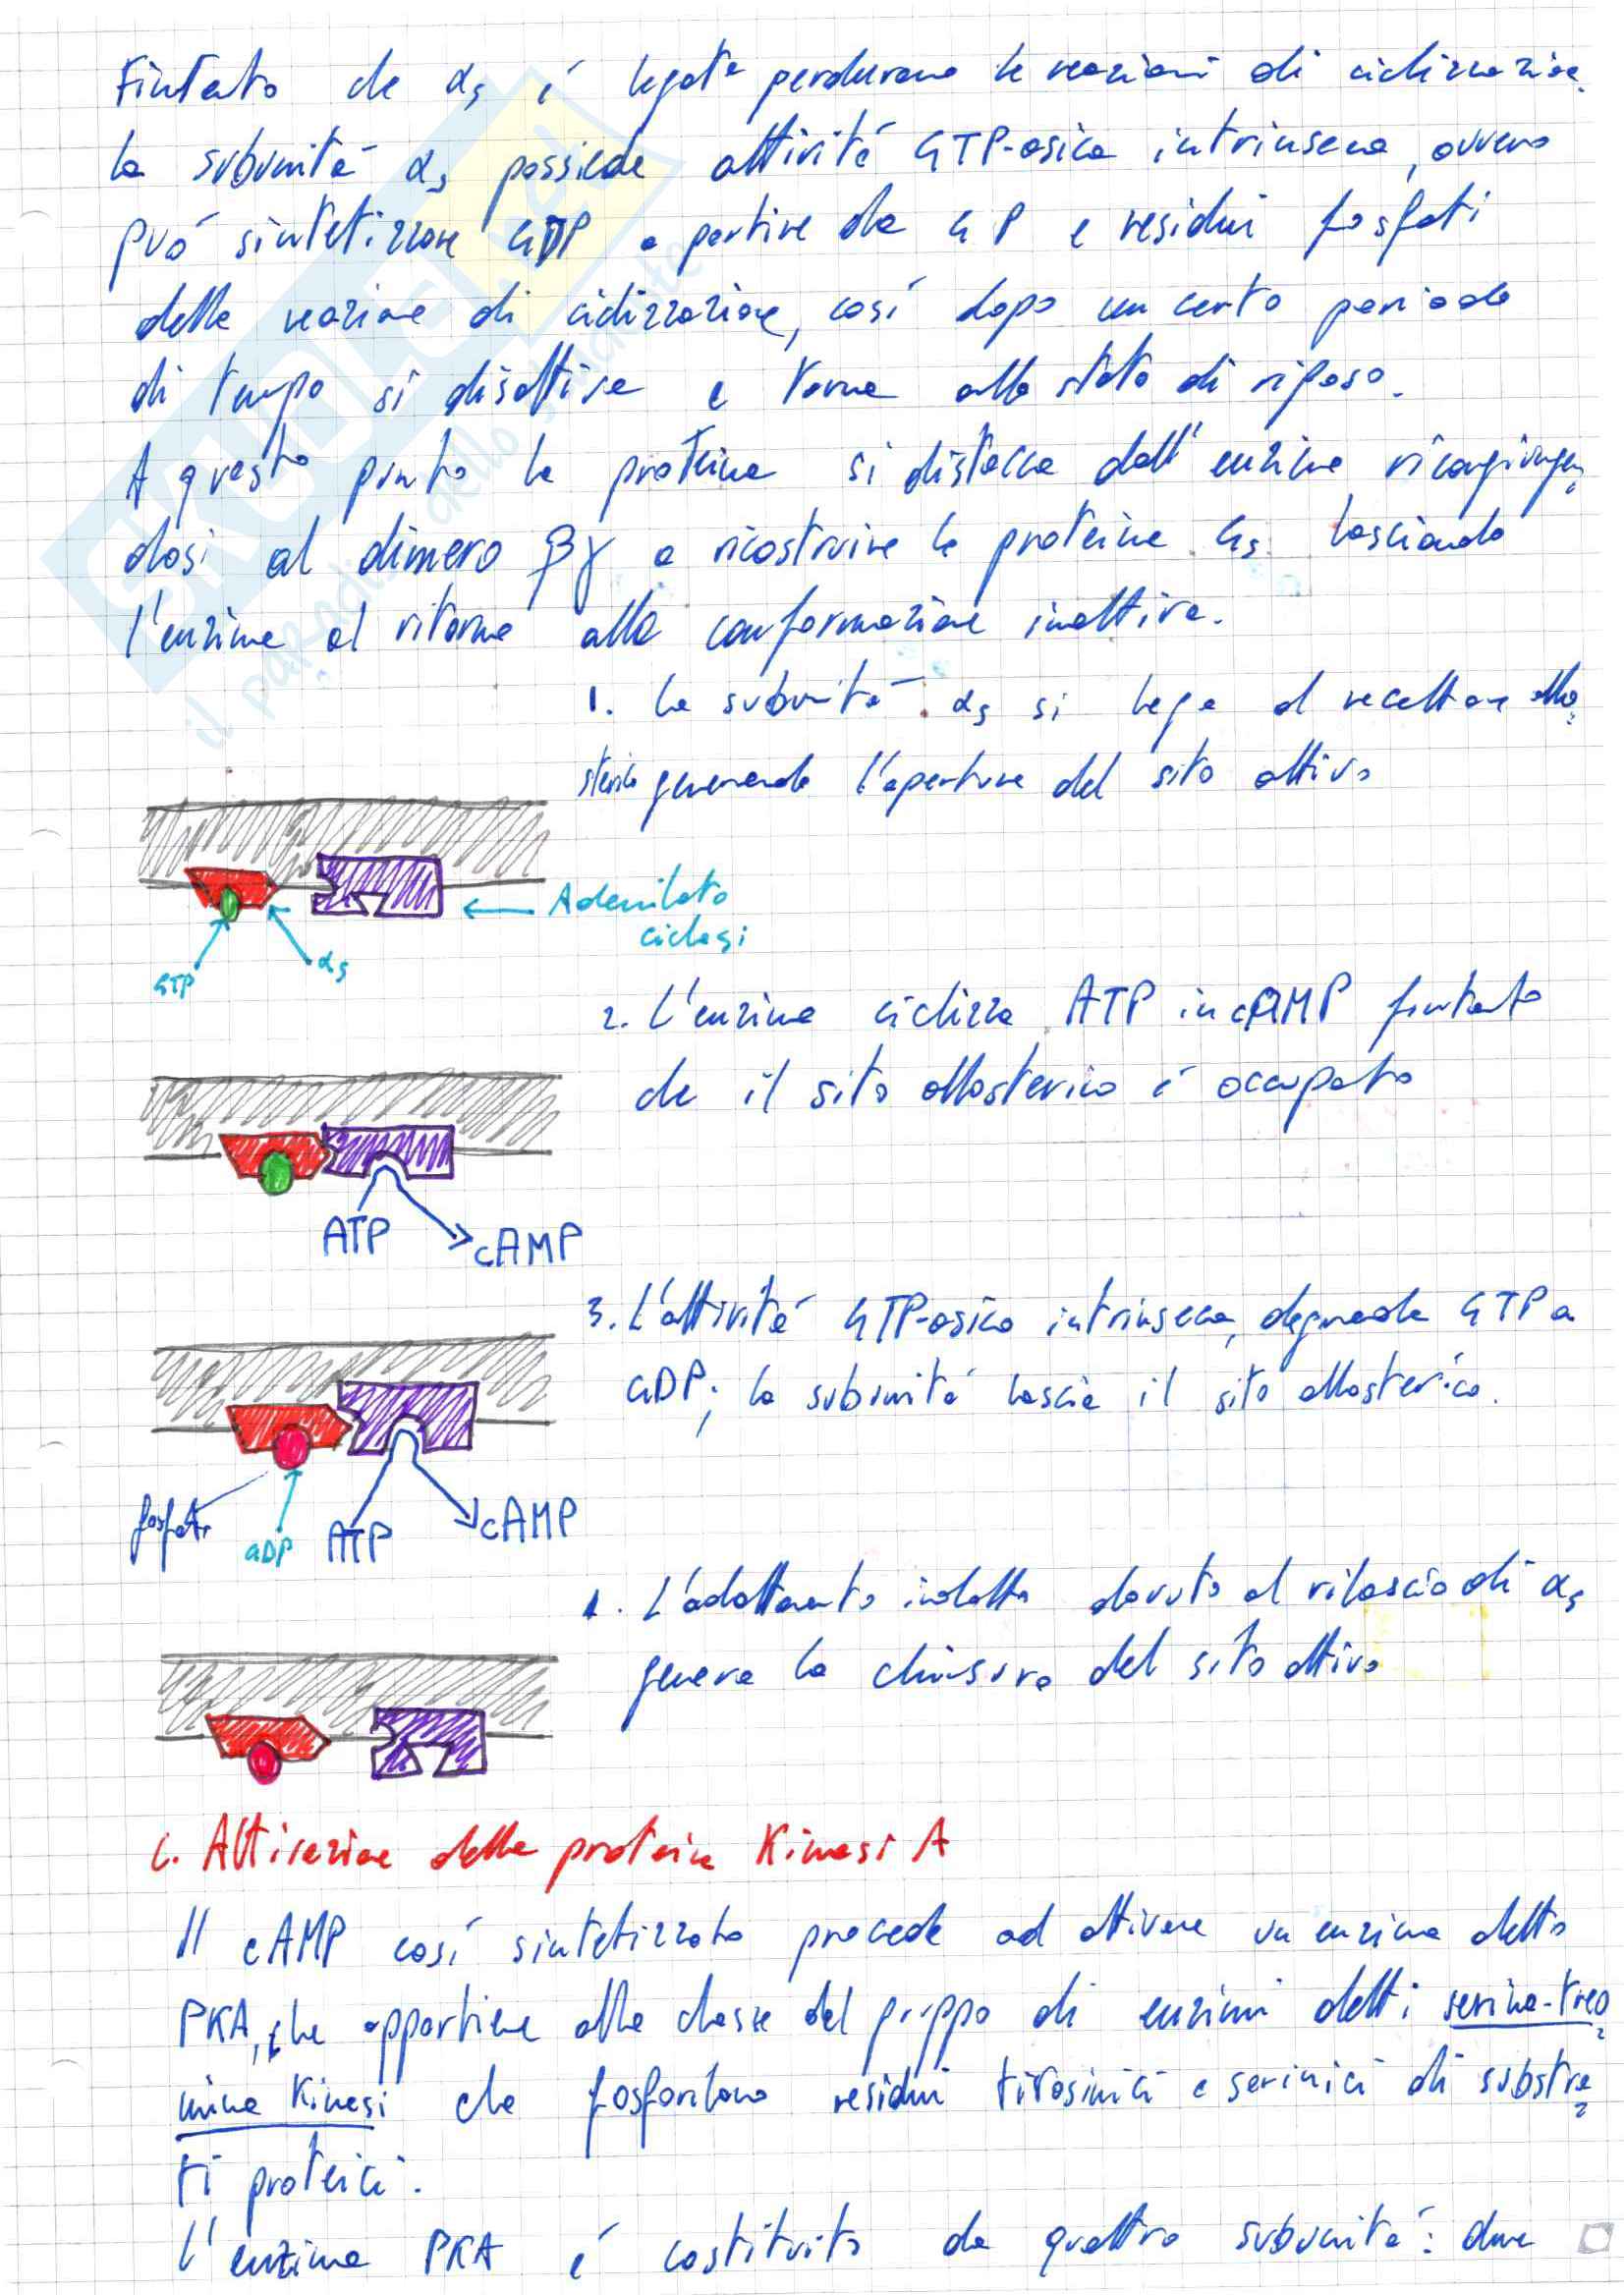 Fintato che αs é legata perdurano le reazioni di ciclizzazione.
la subunitá αs possiede attivitá GTP-asica intrinseca, ovvero
puó sintetizzare GDP a partire da G P e residui fosfati
della reazione di ciclizzazione, cosí dopo un certo periodo
di tempo si disattiva e torna allo stato di riposo.
A questo punto la proteina si distacca dall'enzima ricongiungen
dosi al dimero βγ a ricostruire la proteina Gs lasciando
l'enzima al ritorno alla conformazione inattiva.
1. La subunitá αs si lega al recettore allo
sterico generando l'apertura del sito attivo
Adenilato
ciclasi
GTP
αs
2. L'enzima ciclizza ATP in cAMP fintanto
che il sito allosterico é occupato
ATP
cAMP
3. L'attivitá GTP-asica intrinseca, degrada GTP a
GDP; la subunitá lascia il sito allosterico.
fosfati
GDP
ATP
cAMP
4. L'adattamento indotto dovuto al rilascio di αs
genera la chiusura del sito attivo
C. Attivazione della proteina Kinasi A
Il cAMP cosí sintetizzato procede ad attivare un enzima detto
PKA, che appartiene alla classe del gruppo di enzimi detti serina-treo
nina Kinasi che fosforilano residui tirosinici e serinici di substra
ti proteici.
L'enzima PKA é costituito da quattro subunitá: due
SKUOLA.net
il paradiso dello studente